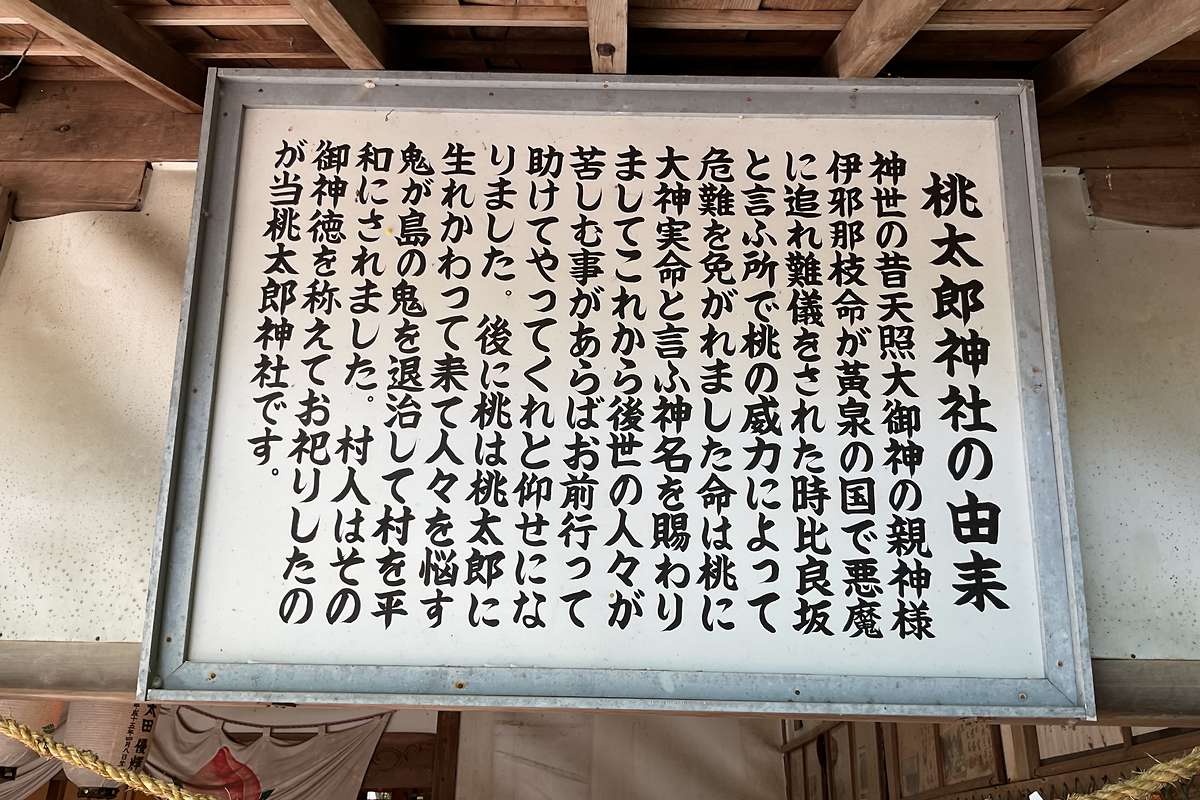 桃太郎神社の由来
神世の昔天照大御神の親神様
伊邪那枝命が黄泉の国で悪魔
に追れ難儀をされた時比良坂
と言ふ所で桃の威力によって
危難を免がれました命は桃に
大神実命と言ふ神名を賜わり
ましてこれから後世の人々が
苦しむ事があらばお前行って
助けてやってくれと仰せにな
りました。後に桃は桃太郎に
生れかわって来て人々を悩す
鬼が島の鬼を退治して村を平
和にされました。村人はその
御神徳を称えてお祀りしたの
が当桃太郎神社です。